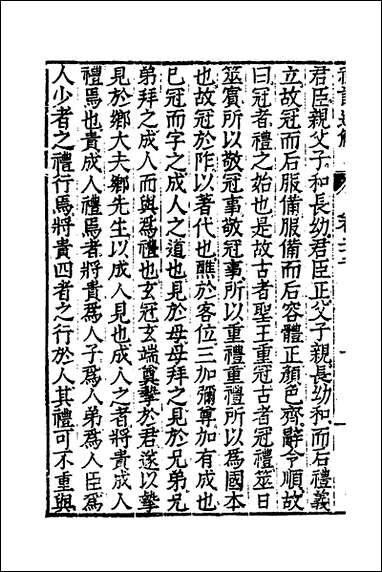 君臣親父子和長幼君臣正父子親長幼和而后禮義
立故冠而后服備服備而后容體正顏色齊辭令順故
曰冠者禮之始也是故古者聖王重冠古者冠禮筮日
筮賓所以敬冠事敬冠事所以重禮重禮所以為國本
也故冠於阼以著代也醮於客位三加彌尊加有成也
已冠而字之成人之道也見於母母拜之見於兄弟兄
弟拜之成人而與為禮也玄冠玄端奠摯於君遂以摯
見於鄉大夫鄉先生以成人見也成人之者將責成人
禮焉也責成人禮焉者將責為人子為人弟為人臣為
人少者之禮行焉將責四者之行於人其禮可不重與